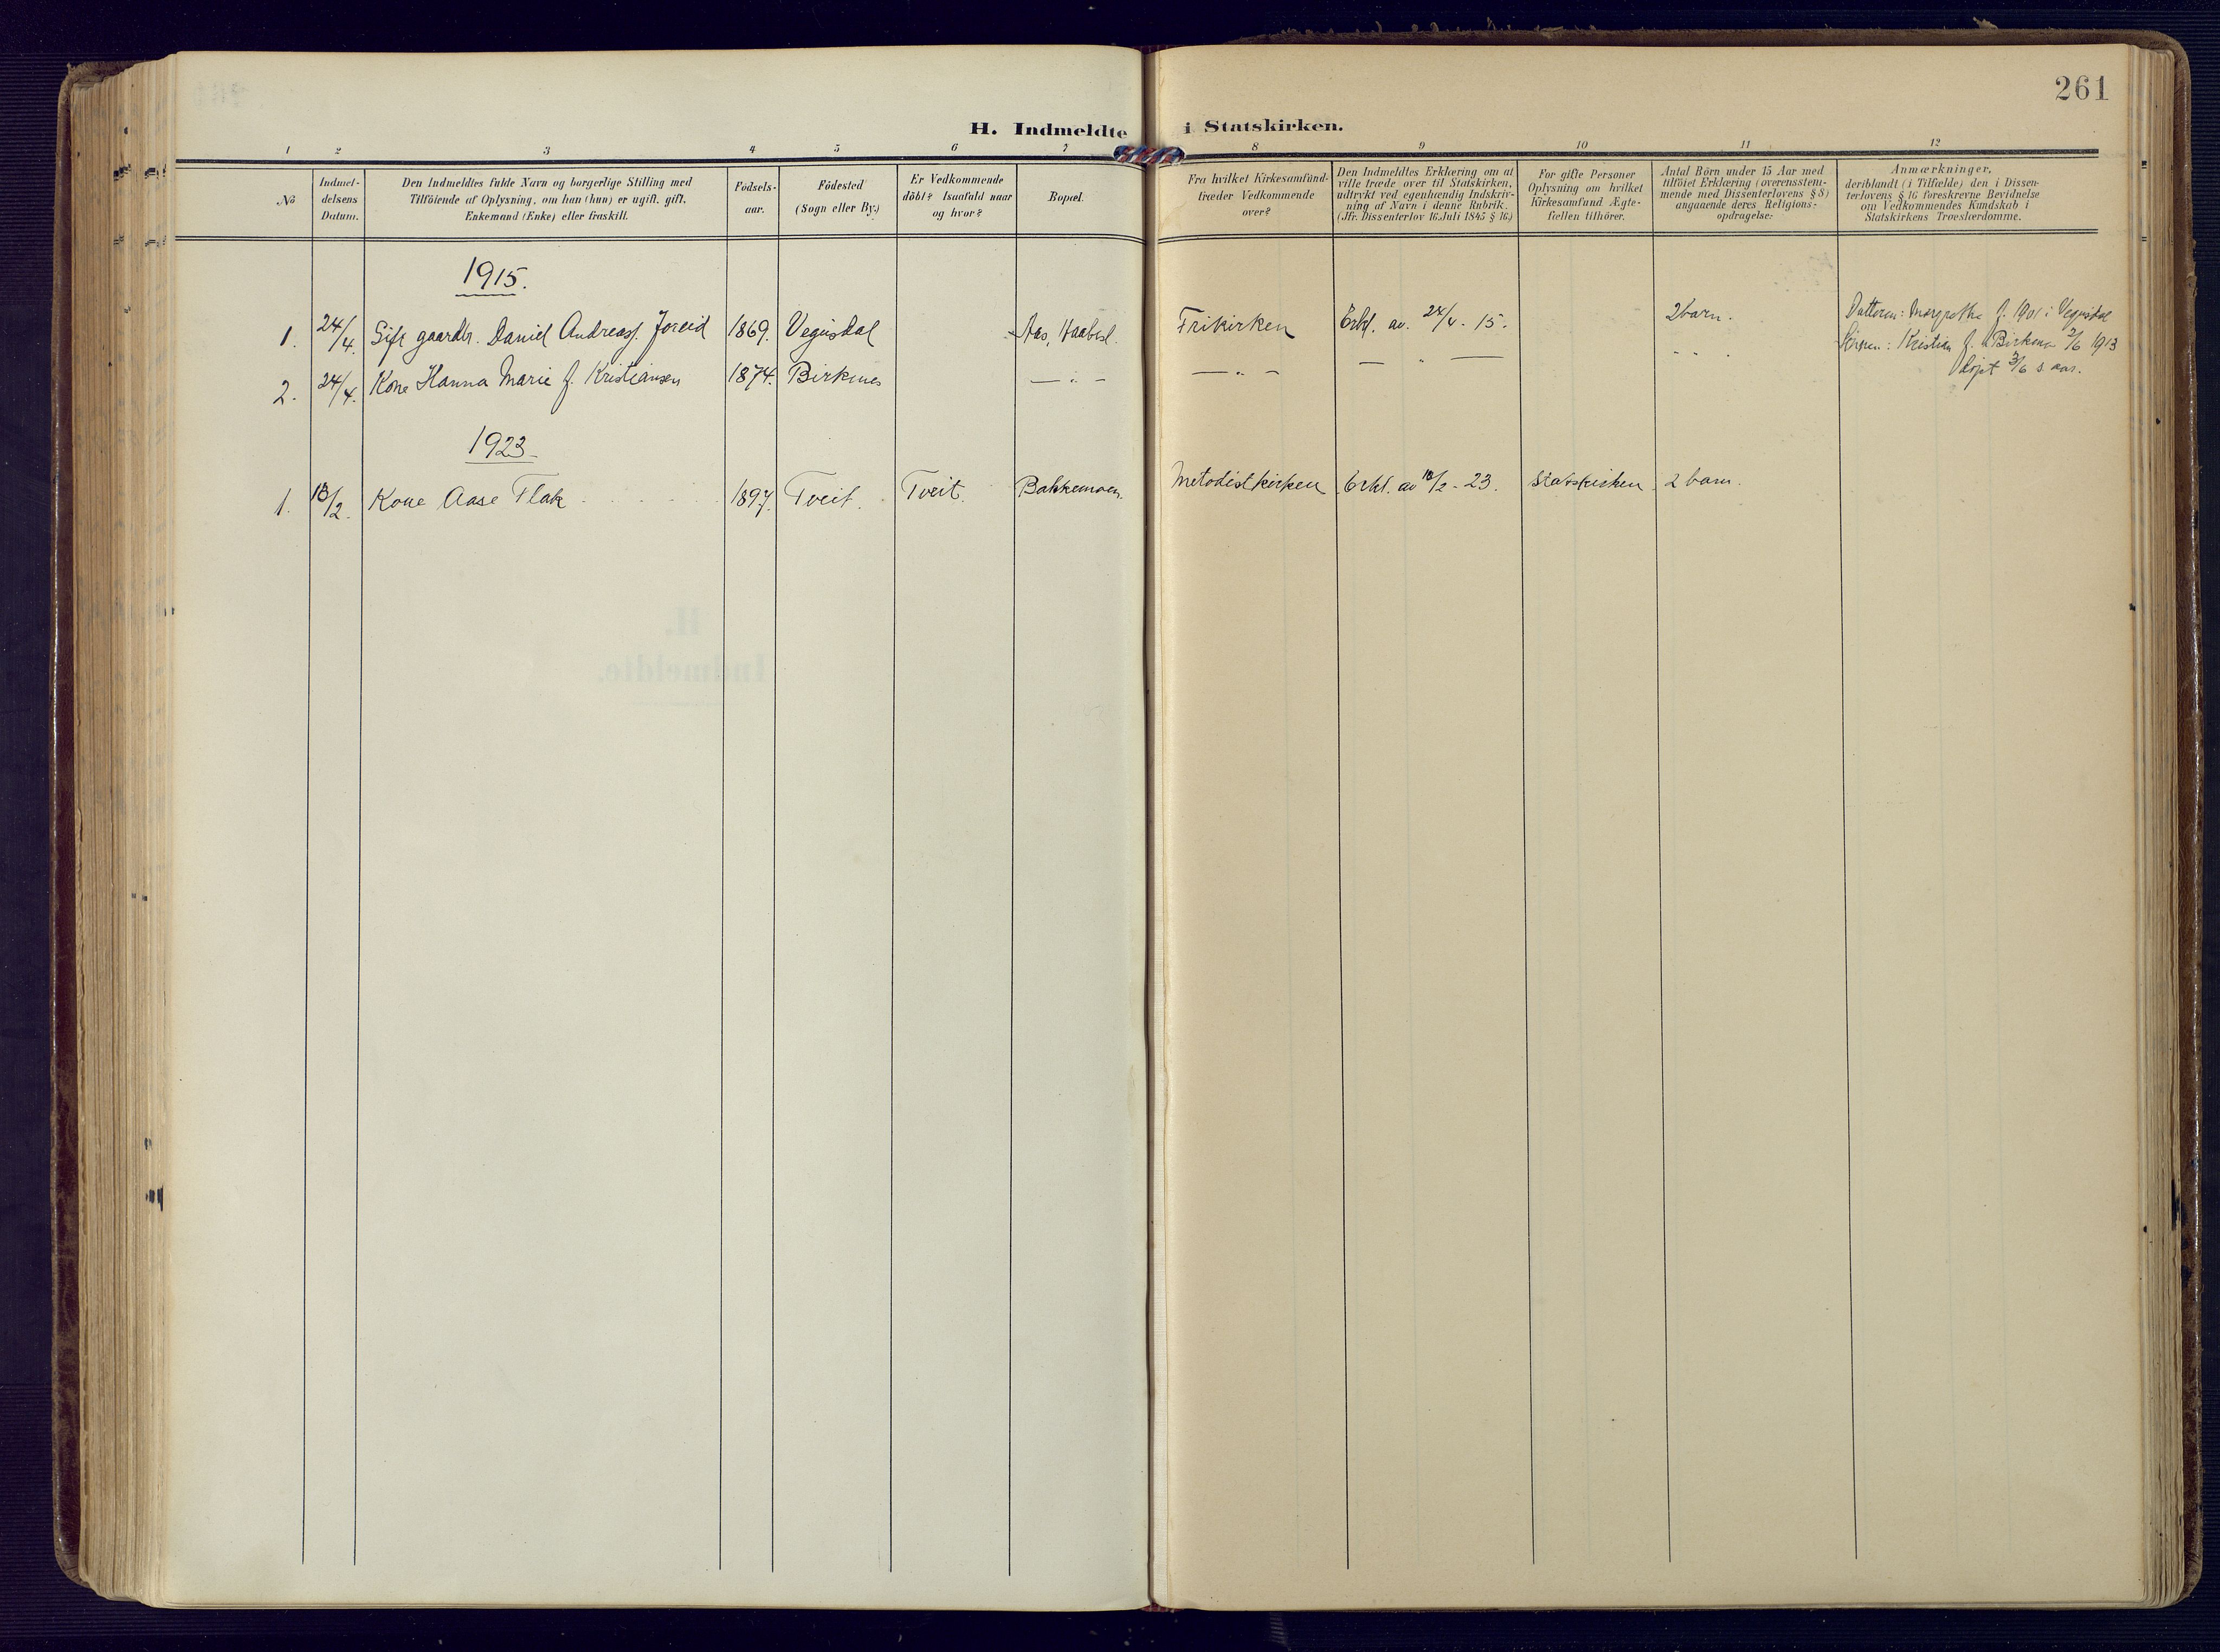 261
H. Indmeldte i Statskirken.
1 2 3 4 5 6 7 8 9 10 11 12
No
Indmel-
delsens
Datum.
Den Indmeldtes fulde Navn og borgerlige Stilling med
Tilföiende af Oplysning, om han (hun) er ugift, gift,
Enkemand (Enke) eller fraskilt.
Födsels-
aar.
Födested
(Sogn eller By.)
Er Vedkommende
döbt? Isaafald naar
og hvor?
Bopæl.
Fra hvilket Kirkesamfund
træder Vedkommende
over?
Den Indmeldtes Erklæring om at
ville træde over til Statskirken,
udtrykt ved egenhændig Indskriv-
ning af Navn i denne Rubrik.
(Jfr. Dissenterlov 16 Juli 1845 § 16.)
For gifte Personer
Oplysning om hvilket
Kirkesamfund Ægte-
fællen tilhörer.
Antal Börn under 15 Aar med
tilföiet Erklæring (overensstem-
mende med Dissenterlovens § 8)
angaaende deres Religions-
opdragelse.
Anmærkninger,
deriblandt (i Tilfælde) den i Dissen-
terlovens § 16 foreskrevne Bevidnelse
om Vedkommendes Kundskab i
Statskirkens Troeslærdomme.
1915.
1. 24/4. Gift gaardbr. Daniel Andreas J. 1869. Vegusdal Aas, Frikirken Erkl. av. 24/4. 15. 2 barn. Datteren: Margrethe f. 1901 i Vegusdal
Kristian f. i Birkenes 2/6 1913
døpt 3/6 s. aar.
2. 24/4. Kone Hanna Marie f. Kristiansen 1874. Birkenes — " — — " — — " — " "
1923
1. 13/2. Kone Aase Flak 1897. Tveit. Tveit. Bakkemoen. Metodistkirken Erkl. av 13/2 - 23. Statskirken 2 barn.